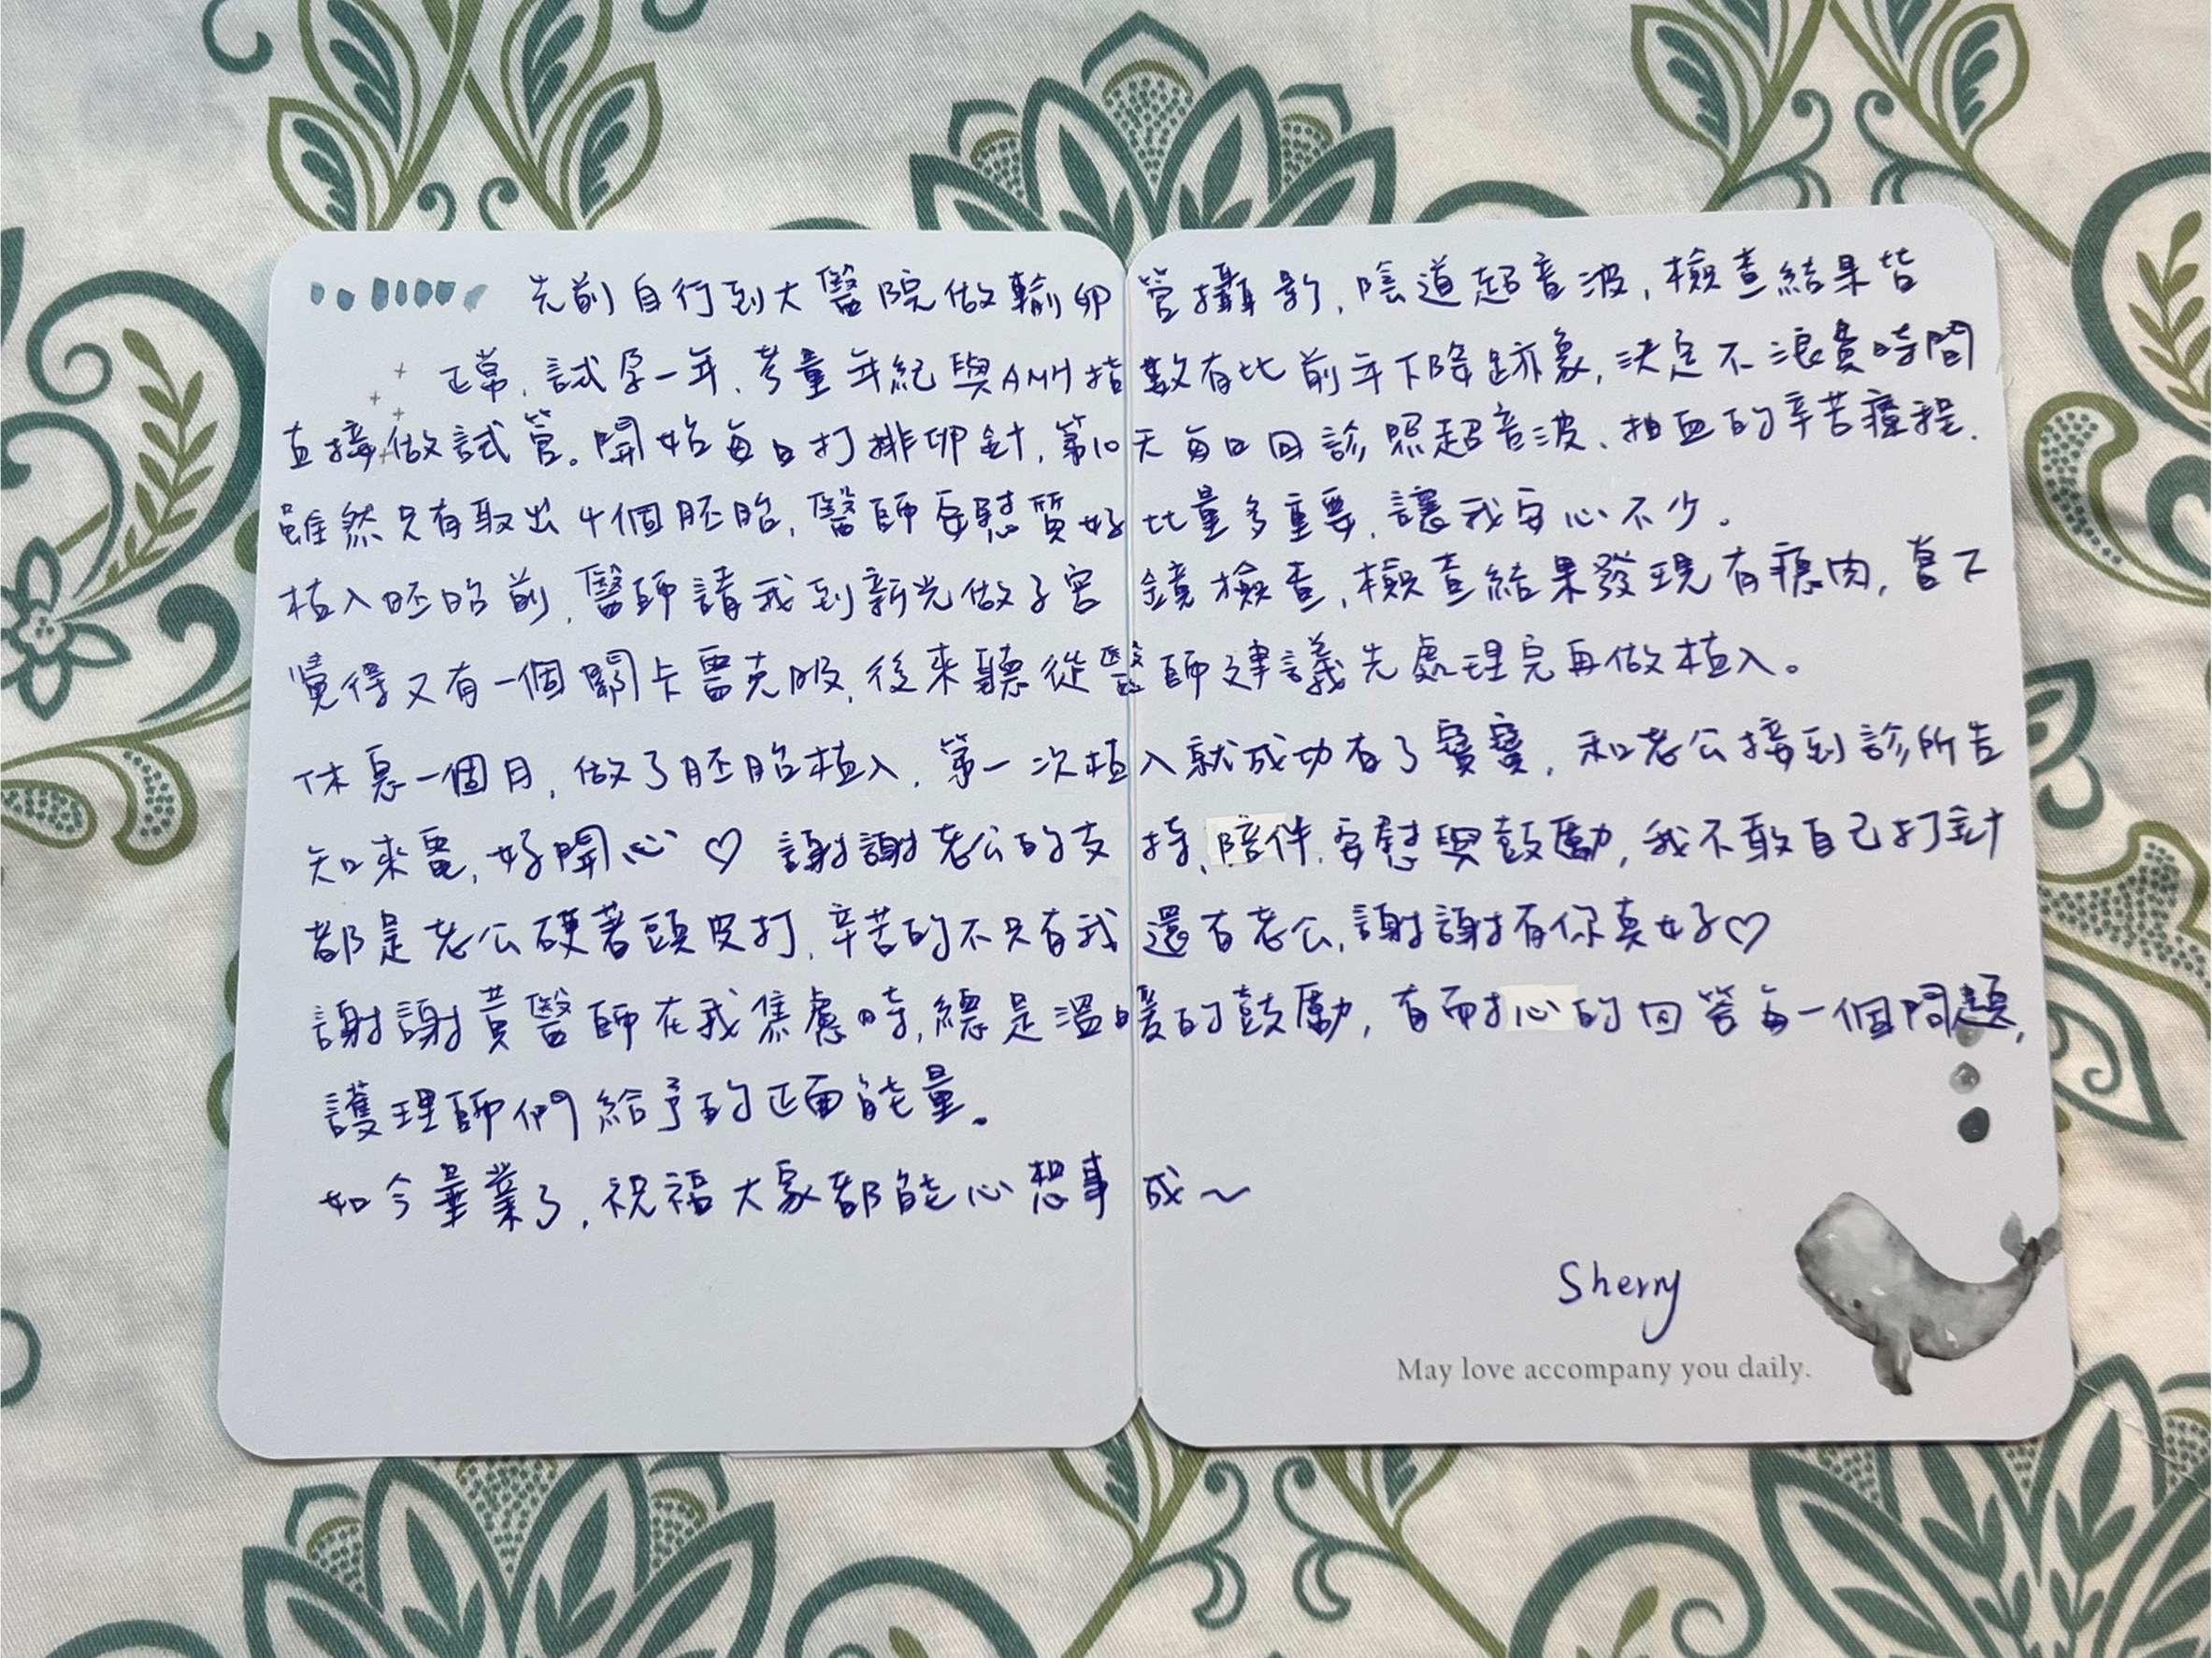 先前自行到大醫院做輸卵管攝影,陰道超音波,檢查結果皆
正常,試孕一年、考量年紀與AMH指數有比前年下降跡象,決定不浪費時間
直接做試管。開始每日打排卵針,第10天每日回診照超音波、抽血的辛苦療程.
雖然只有取出4個胚胎,醫師安慰質好比量多重要,讓我安心不少。
植入胚胎前,醫師請我到新光做子宮鏡檢查,檢查結果發現有瘜肉,當下
覺得又有一個關卡需克服,後來聽從醫師建議先處理完再做植入。
休息一個月,做了胚胎植入,第一次植入就成功有了寶寶,和老公接到診所告
知來電,好開心♡ 謝謝老公的支持、陪伴、安慰與鼓勵,我不敢自己打針
都是老公硬著頭皮打,辛苦的不只有我還有老公,謝謝有你真好♡
謝謝黃醫師在我焦慮時,總是溫暖的鼓勵,有耐心的回答每一個問題,
護理師們給予的正面能量。
如今畢業了,祝福大家都能心想事成~
Sherry
May love accompany you daily.